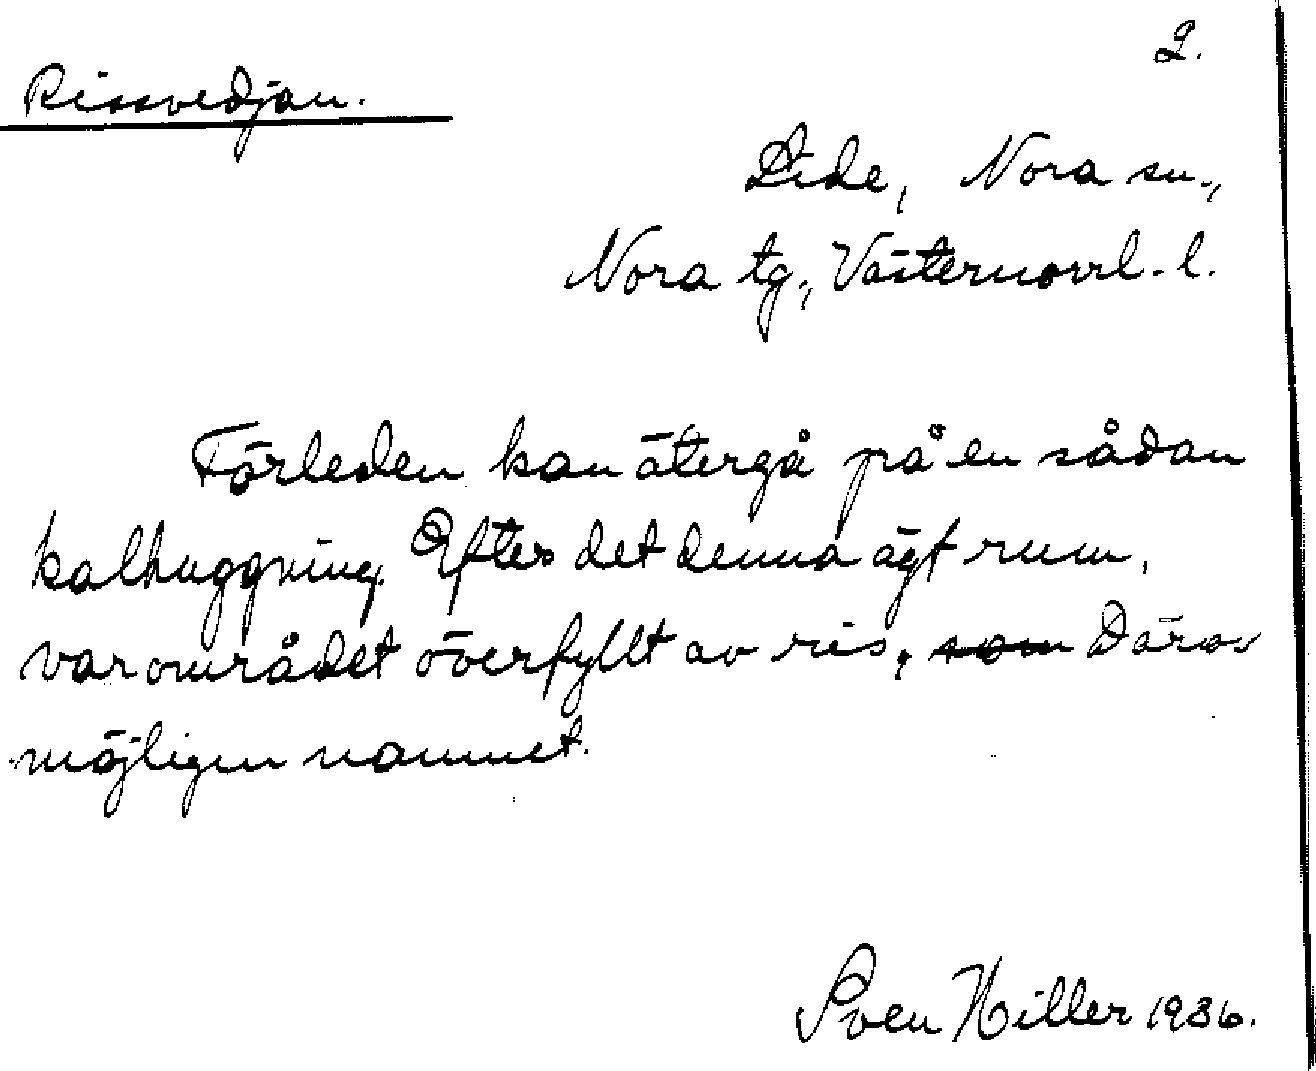 2.
Rissvedjan.
Lide, Nora sn.,
Nora tg., Västernorrl. l.
Förleden kan återgå på en sådan
kalhuggning. Efter det denna ägt rum,
var området överfyllt av ris. som Därav
möjligen namnet.
Sven Hiller 1936.